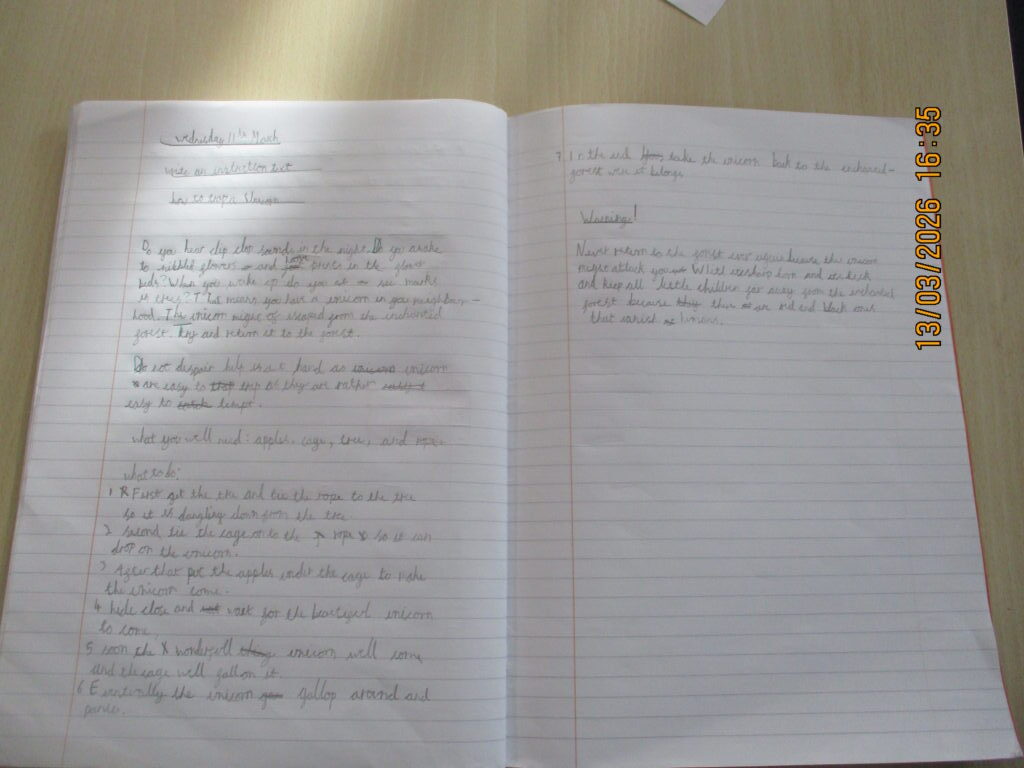 Wednesday 11th March
write an instruction text
how to trap a Unicorn
Do you hear clip clop sounds in the night. Do you awake
to nibbled flowers and hoofe prints in the flower
beds? When you wake up do you see marks
in trees? That means you have a unicorn in you neighbour-
hood. The unicorn might of escaped from the enchanted
forest. Try and return it to the forest.
Do not despair help is at hand as unicorn
are easy to trap as they are rather
easy to tempt.
what you well need: apples, cage, tree, and rope
what to do:
1 First get the tree and tie the rope to the tree
so it is dangling down from the tree
2 second tie the cage on to the rope so it can
drop on the unicorn.
3 After that put the apples under the cage to make
the unicorn come.
4 hide close and wait for the beautiful unicorn
to come.
5 soon the wonderfull unicorn well come
and the cage well fall on it.
6 Eventually the unicorn gallop around and
panic.
7. In the end take the unicorn back to the enchanted-
forest were it belongs
Warning!
Never return to the forest ever again because the unicorn
might attack you
and keep all little children far away from the enchanted
forest because there are red and black ones
that
13/03/2026 16:35